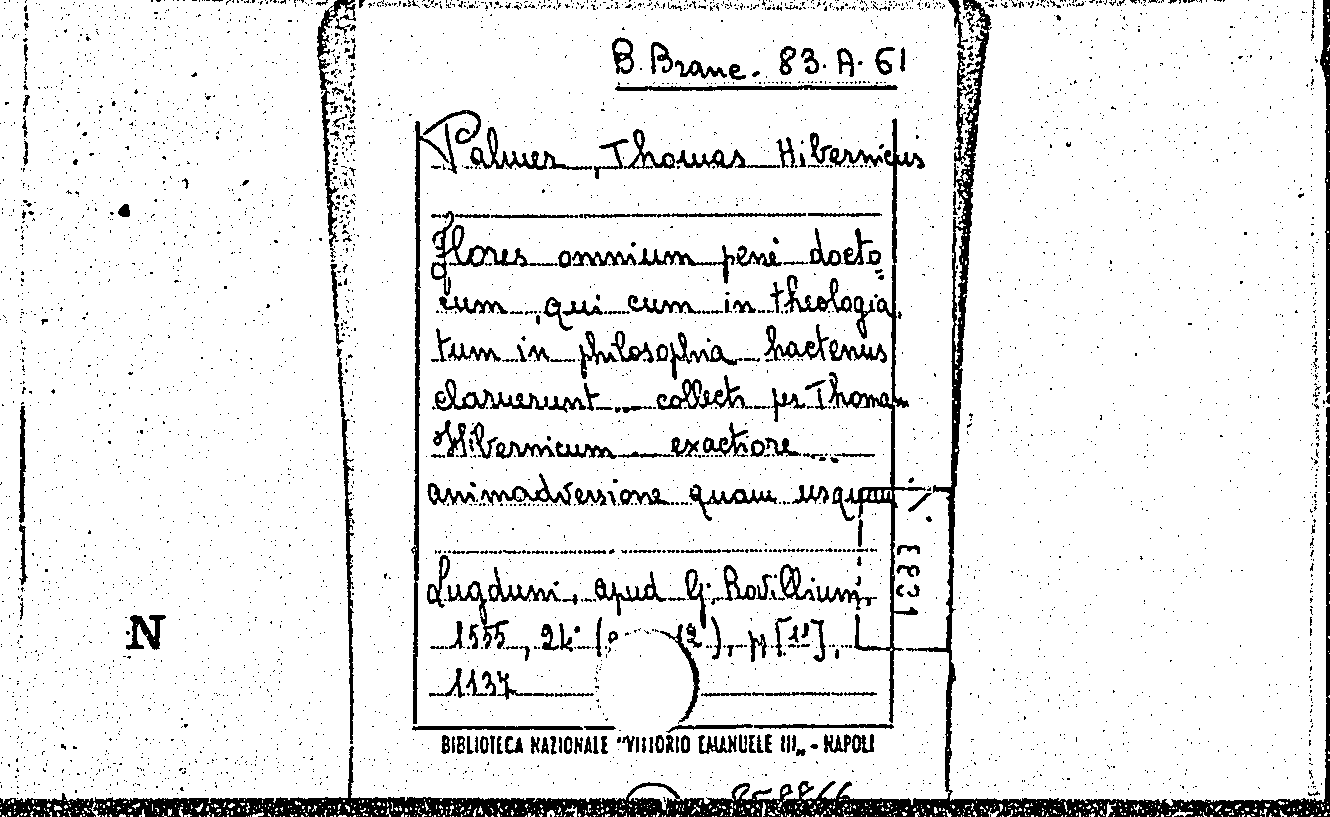 B. Branc. 83. A. 61
Palmer, Thomas Hibernicus
Flores omnium penè docto=
rum, qui cum in theologia,
tum in philosophia hactenus
claruerunt ... collecti per Thomam
Hibernicum ... exactiore ...
animadversione quam usquam
Lugduni, apud G. Rovillium,
1555, 24° ( 12°), p [11],
1137
1883
N
BIBLIOTECA NAZIONALE "VITTORIO EMANUELE III" - NAPOLI